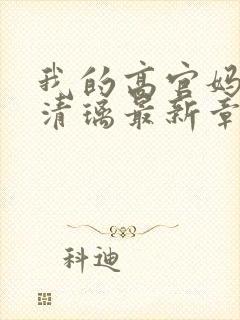 我的高官妈
清璃最新章
科迪